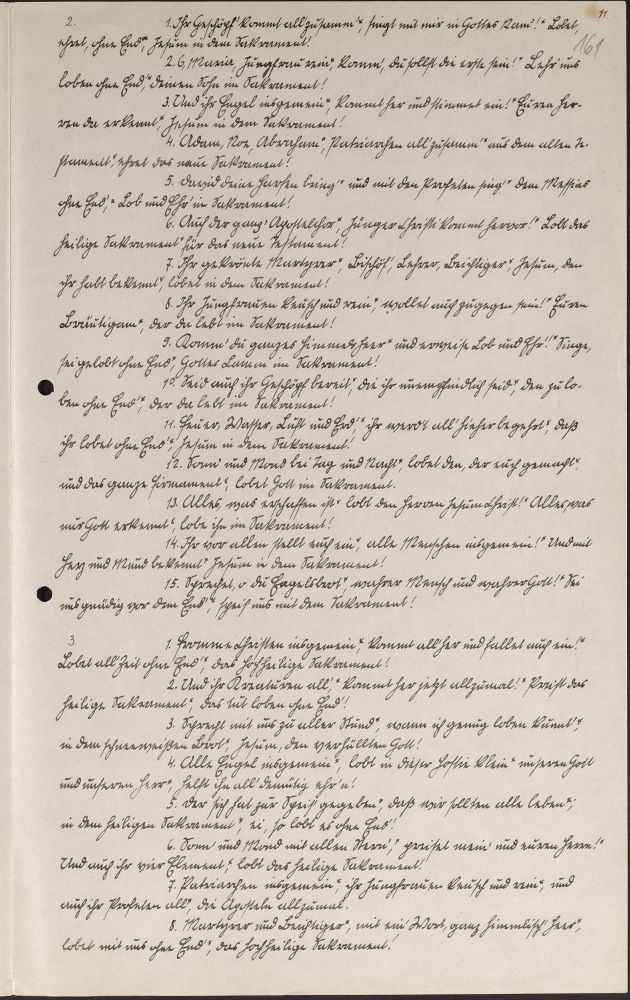 11.
161
2. 1. Ihr Geschöpf' kommt all zusamm'", singt mit mir in Gottes Nam'!" Lobet,
ehret, ohne End'", Jesum in dem Sakrament!
2. O, Maria, Jungfrau rein", komm, du sollst die erste sein!" Lehr' uns
loben ohne End'", deinen Sohn im Sakrament!
3. Und ihr Engel insgemein", kommt her und stimmet ein!" Euren Her-
ren da erkennt" Jesum in dem Sakrament!
4. Adam, Noe, Abraham", Patriarchen all' zusamm'" aus dem alten Te-
stament", ehret das neue Sakrament!
5. David deine Harfen bring'" und mit den Profeten sing'" dem Messias
ohne End'," Lob und Ehr' im Sakrament!
6. Auch der ganz' Apostelchor", Jünger Christi kommt hervor!" Lobt das
heilige Sakrament" für das neue Testament!
7. Ihr gekrönte Martyrer", Bischöf', Lehrer, Beichtiger", Jesum, den
ihr habt bekennt", lobet in dem Sakrament!
8. Ihr Jungfrauen keusch und rein", wollet auch zugegen sein!" Euren
Bräutigam", der da lebt im Sakrament!
9. Komm' du ganzes Himmelsheer" und erweise Lob und Ehr'!" Singe,
sei gelobt ohne End", Gottes Lamm im Sakrament!
10. Seid auch ihr Geschöpf bereit", die ihr unempfindlich seid", den zu lo-
ben ohne End'", der da lebt im Sakrament!
11. Feuer, Wasser, Luft und Erd'," ihr werd't all' hieher begehrt", daß
ihr lobet ohne End'" Jesum in dem Sakrament!
12. Sonn' und Mond bei Tag und Nacht", lobet den, der euch gemacht",
und das ganze Firmament", lobet Gott im Sakrament.
13. Alles, was erschaffen ist" lobt den Herren Jesum Christ!" Alles, was
nur Gott erkennt", lobe ihn im Sakrament!
14. Ihr vor allen stellt euch ein", alle Menschen insgemein!" Und mit
Herz und Mund bekennt" Jesum in dem Sakrament!
15. Sprechet, o du Engelsbrot", wahrer Mensch und wahrer Gott!" Sei
uns gnädig vor dem End'", speis' uns mit dem Sakrament!
3. 1. Fromme Christen insgemein", kommt all' her und fallet auch ein!"
Lobet all' Zeit ohne End'" das hochheilige Sakrament!
2. Und ihr Kreaturen all'," kommt her jetzt allzumal!" Preist das
heilige Sakrament", das tut loben ohne End'!
3. Sprecht mit uns zu aller Stund", wann ich genug loben kunnt'",
in dem schneeweißen Brot", Jesum, den verhüllten Gott!
4. Alle Engel insgemein", lobt in dieser Hostie klein" unseren Gott
und unseren Herr", helft ihn all' demütig ehr'n!
5. Der sich hat zur Speis' gegeben", daß wir sollten alle leben";
in dem heiligen Sakrament", ei, so lobt es ohne End'!
6. Sonn' und Mond mit allen Stern'," preiset mein' und euren Herrn!"
Und auch ihr vier Element'," lobt das heilige Sakrament!
7. Patriarchen insgemein", ihr Jungfrauen keusch und rein", und
auch ihr Profeten all", die Aposteln allzumal.
8. Martyrer und Beichtiger", mit ein' Wort, ganz himmlisch' Heer",
lobet mit uns ohne End'", das hochheilige Sakrament!